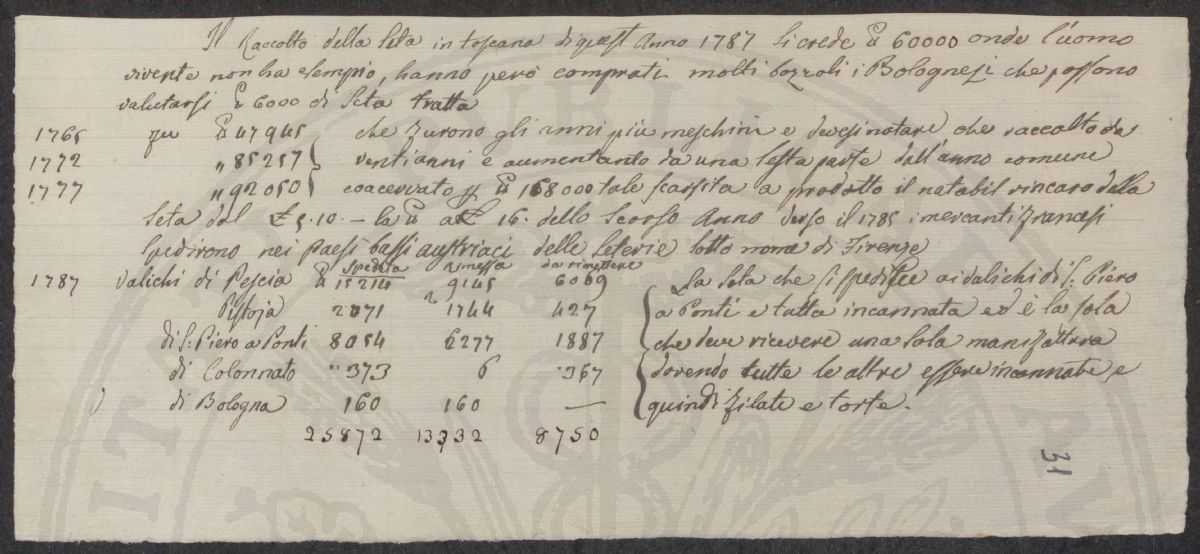 Il Raccolto della Seta in toscana di quest Anno 1787 Si crede ℔ 60000 onde l'uomo
vivente non ha esempio, hanno però comprati molti bozzoli i Bolognesi che possono
valutarsi ℔ 6000 di Seta tratta
1765 fu ℔ 47945 che furono gli anni più meschini e devesi notare che raccolto da
1772 " 85257 venti anni e aumentando da una sesta parte dall'anno comune
1777 " 92050 coacervato ℔ 168000 tale scarsita a prodotto il notabil rincaro della
Seta dal £ 5.10.– la ℔ a £ 16. dello Scorso Anno verso il 1785 i mercanti francesi
Spedirono nei paesi bassi austriaci delle Seterie Sotto nome di Firenze
Spedita Rimessa da rimettere
1787 valichi di Pescia ℔ 15214 9145 6069 La Seta che si spedisce ai valichi di S: Piero
Pistoja 2071 1744 427 a Ponti e tutta incannata ed è la sola
di S: Piero a Ponti 8054 6277 1887 che deve ricevere una sola manifattura
di Colonnato " 373 6 367 dovendo tutte le altre essere incannate e
di Bologna 160 160 — quindi filate e torte.
25872 13332 8750
31